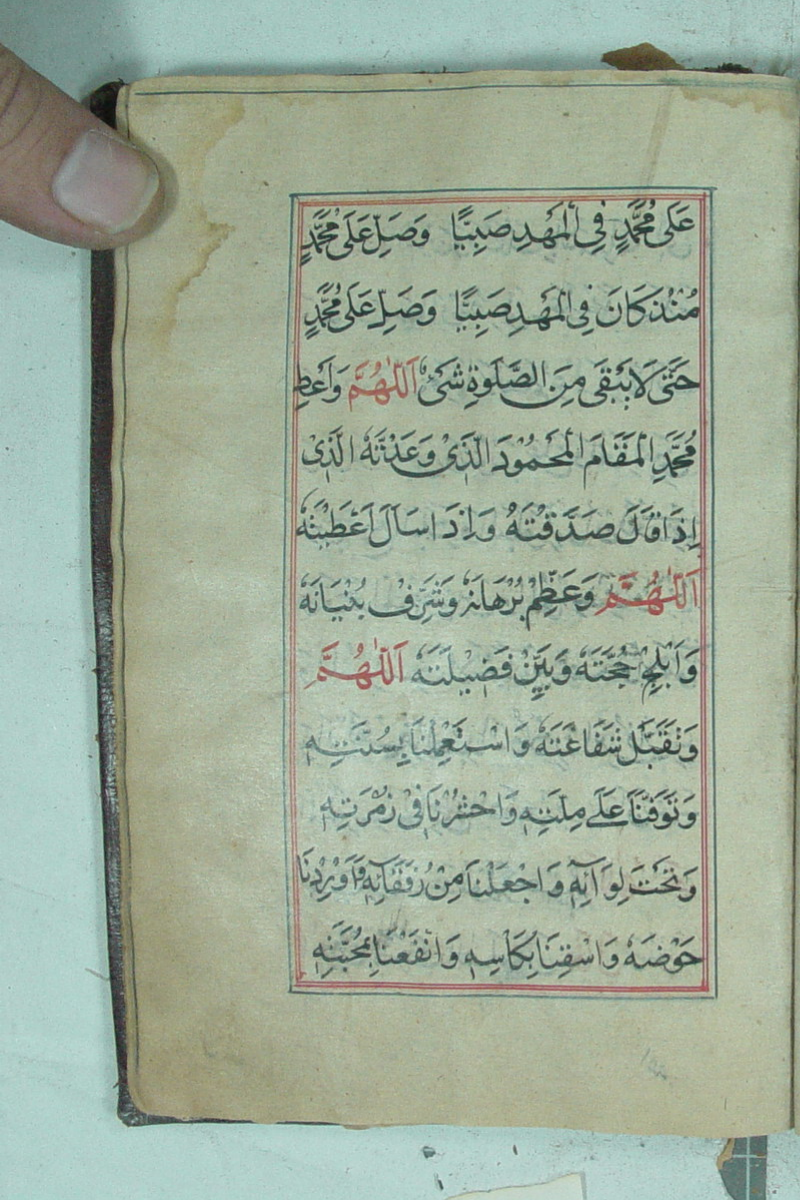 عَلٰى مُحَمَّدٍ فِي الْمَهْدِ صَبِيًّا وَصَلِّ عَلٰى مُحَمَّدٍ
مُنْذُ كَانَ فِي الْمَهْدِ صَبِيًّا وَصَلِّ عَلٰى مُحَمَّدٍ
حَتّٰى لَا يَبْقٰى مِنَ الصَّلٰوةِ شَيْءٌ اَللّٰهُمَّ وَاَعْطِ
مُحَمَّدِ الْمَقَامَ الْمَحْمُوْدَ الَّذِيْ وَعَدْتَهُ الَّذِيْ
اِذَا قَالَ صَدَّقْتَهُ وَاِذَا سَاَلَ اَعْطَيْتَهُ
اَللّٰهُمَّ وَعَظِّمْ بُرْهَانَهُ وَشَرِّفْ بُنْيَانَهُ
وَاَبْلِجْ حُجَّتَهُ وَبَيِّنْ فَضِيْلَتَهُ اَللّٰهُمَّ
وَتَقَبَّلْ شَفَاعَتَهُ وَاسْتَعْمِلْنَا بِسُنَّتِهِ
وَتَوَفَّنَا عَلٰے مِلَّتِهِ وَاحْشُرْنَا فِيْ زُمْرَتِهِ
وَتَحْتَ لِوَآئِهِ وَاجْعَلْنَا مِنْ رُفَقَائِهِ وَاَوْرِدْنَا
حَوْضَهُ وَاسْقِنَا بِكَاْسِهِ وَانْفَعْنَا بِمَحَبَّتِهِ